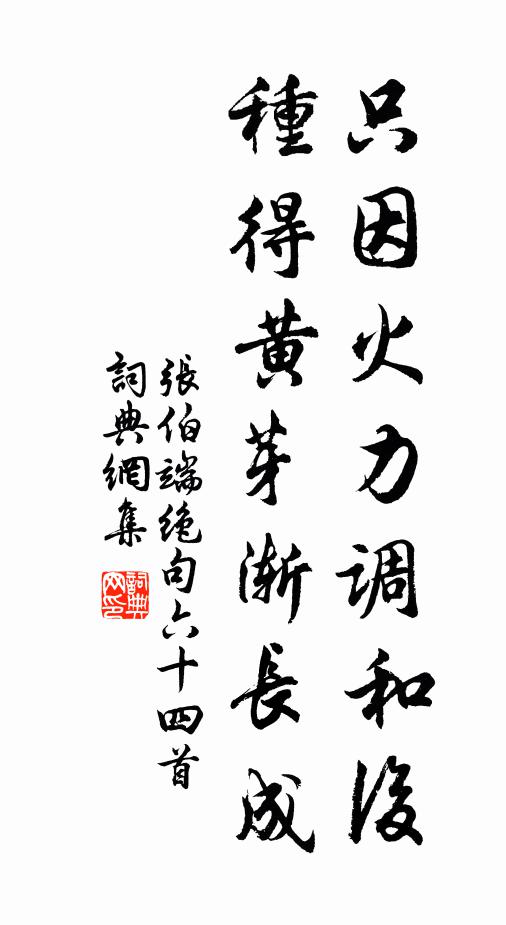 只因火力调和後
種得黄芽渐長成
張伯端絶句六十四首
詞典網集
詞典网印